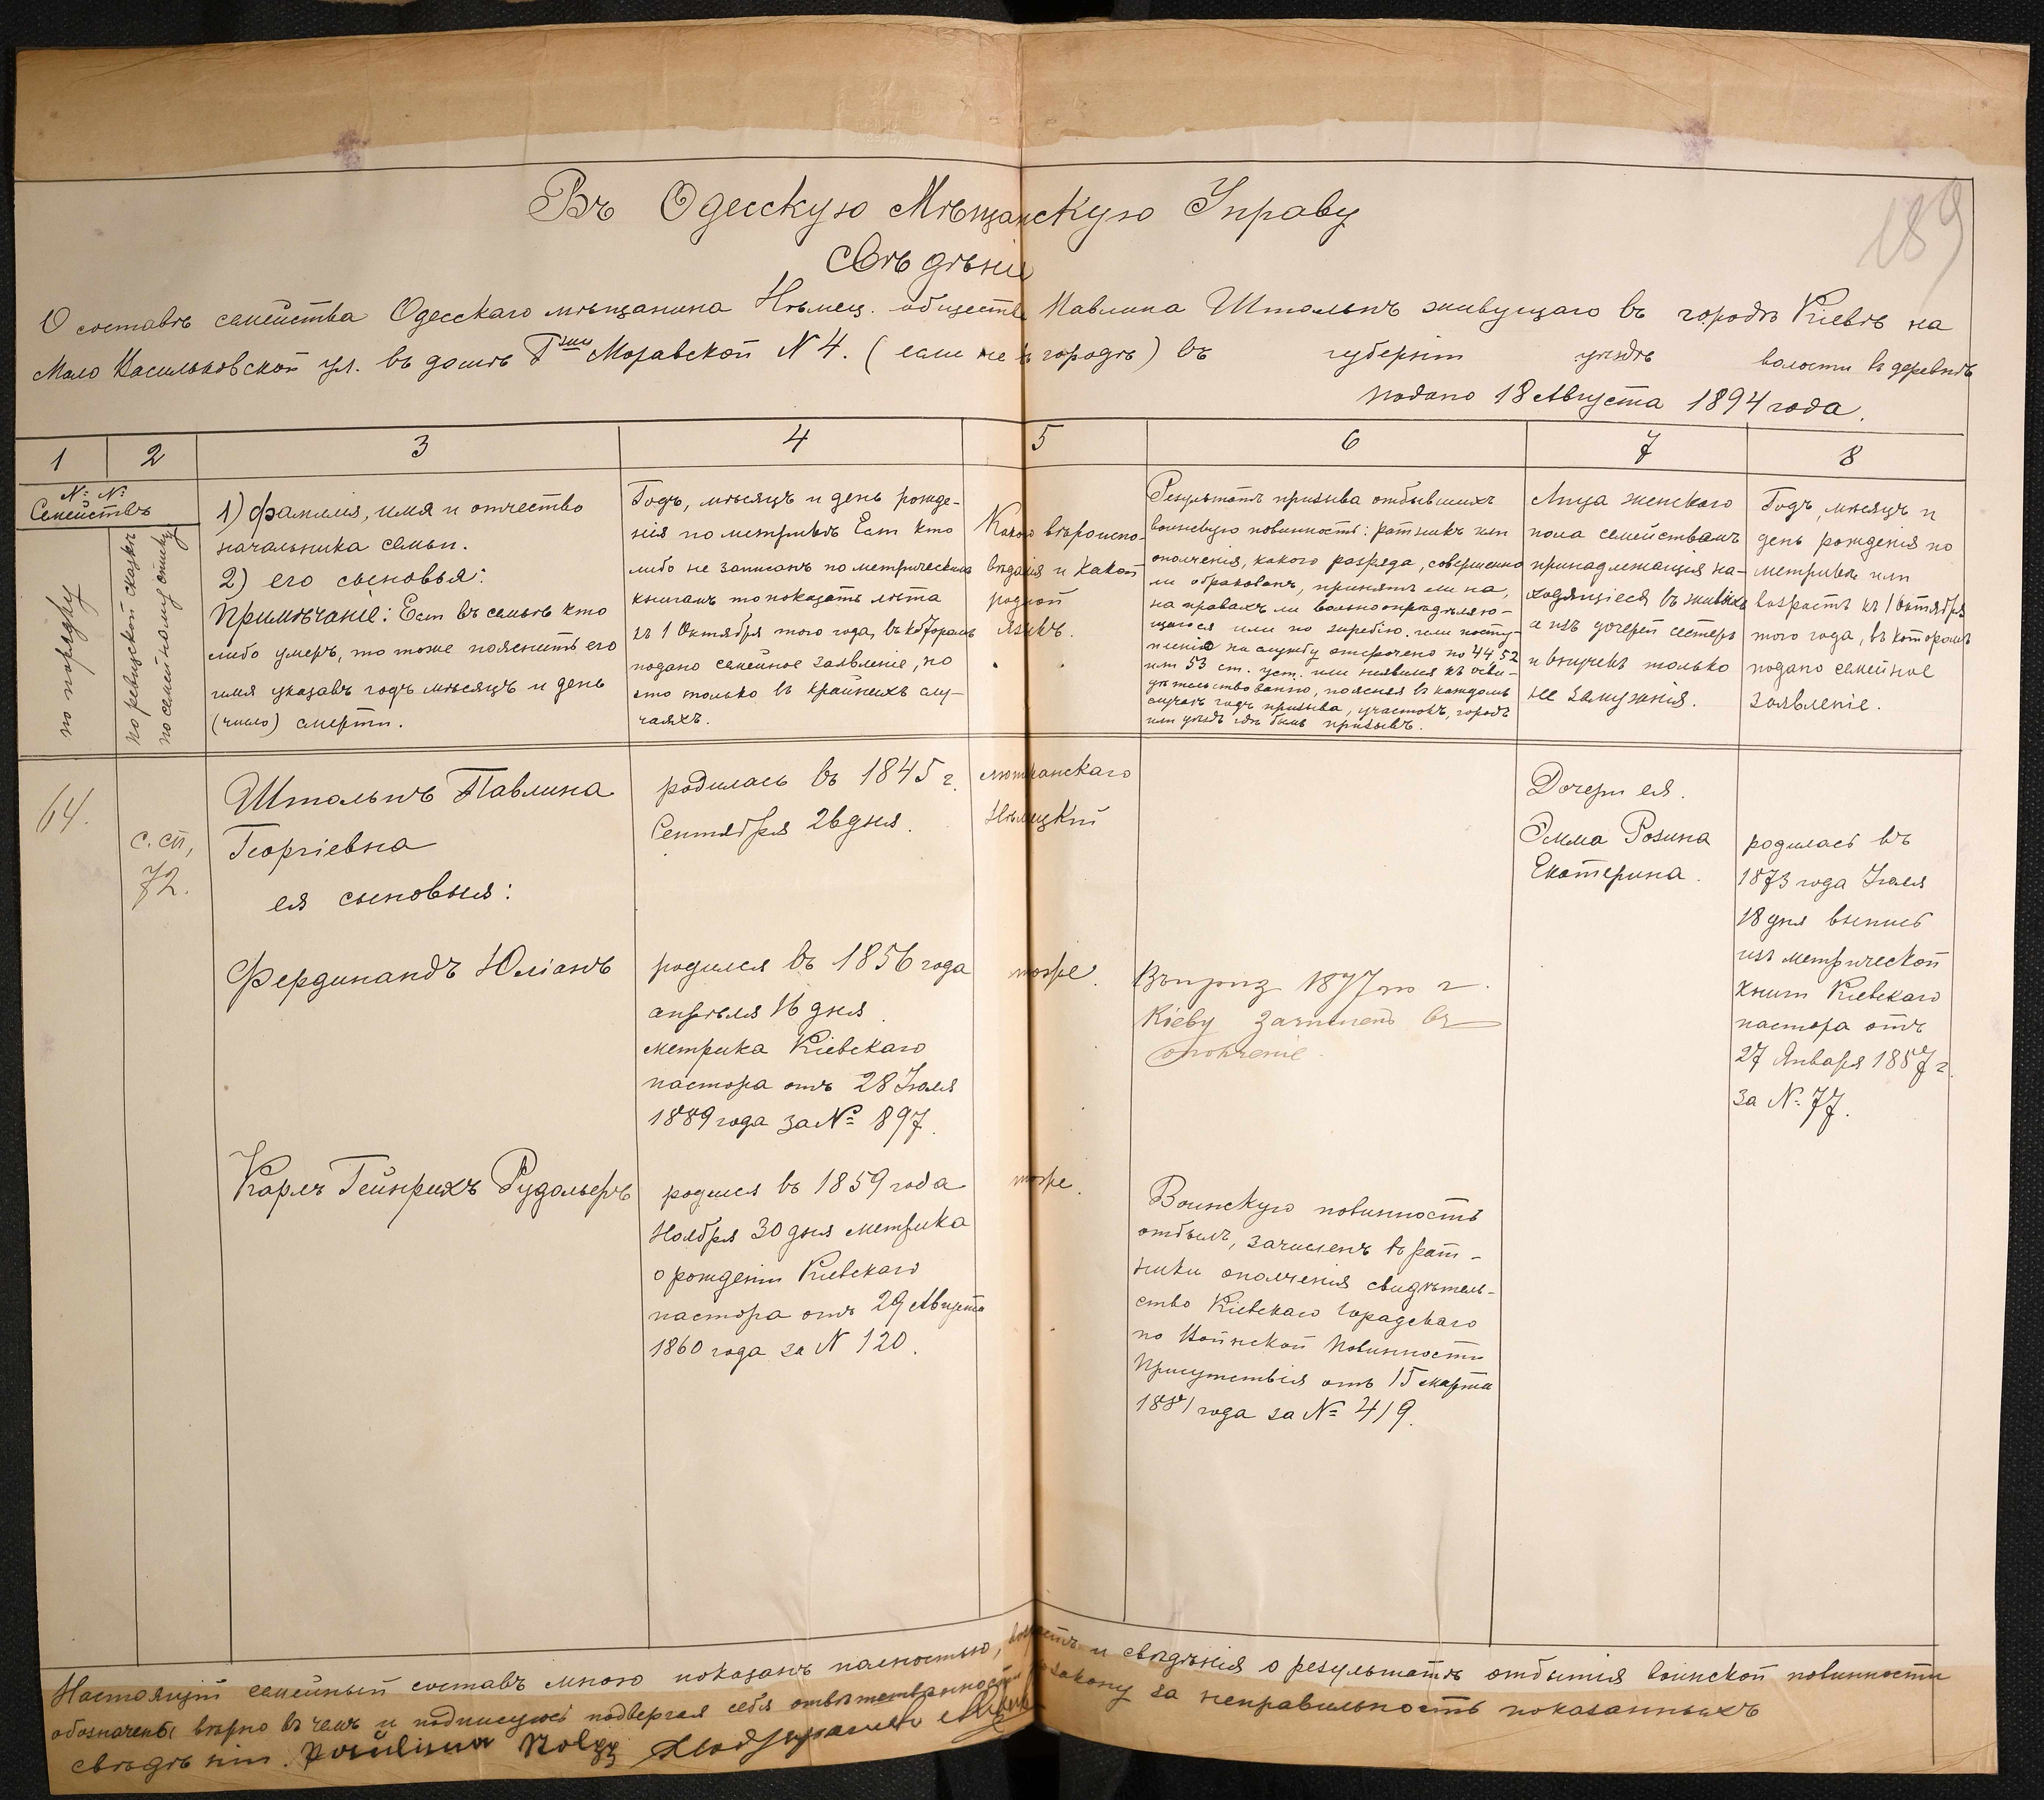 189
Въ Одесскую Мѣщанскую Управу
Свѣдѣнiе
О составѣ семейства Одесскаго мѣщанина Нѣмец. общества Павлина Штольцъ живущаго въ городѣ Кiевѣ на
Мало Васильковской ул. въ домѣ Г-жи Моравской N 4. (если не въ городѣ) въ губернiи уѣздѣ волости въ деревнѣ
подано 18 Августа 1894 года.
1 2 3 4 5 6 7 8
№ №
Семействъ
по порядку
по ревизской сказкѣ
по семейному списку
1) фамилiя, имя и отчество
начальника семьи.
2) его сыновья:
Примѣчанiе: Если въ семьѣ кто
либо умеръ, то тоже пояснить его
имя указавъ годъ мѣсяцъ и день
(число) смерти.
Годъ, мѣсяцъ и день рожде-
нiя по метрикѣ Если кто
либо не записанъ по метрическимъ
книгамъ то показать лѣта
къ 1 Октября того года, въ которомъ
подано семейное заявленiе, но
это только въ крайнихъ слу-
чаяхъ.
Какого вѣроиспо-
вѣданiя и какой
родной
языкъ.
Результатъ призыва отбывшихъ
воинскую повинность: ратникъ или
ополченiя, какого разряда, совершенно
ли забракованъ, принятъ ли на,
на правахъ ли вольноопредѣляю-
щагося или по жребiю. или посту-
пленiе на службу отсрочено по 44, 52
или 53 ст. уст. или неявился къ осви-
дѣтельствованiю, поясняя въ каждомъ
случаѣ годъ призыва, участокъ, городъ
или уѣздъ гдѣ былъ призывъ.
Лица женскаго
пола семействамъ
принадлежащiя на-
ходящiеся въ живыхъ
а изъ дочерей сестеръ
и внучекъ только
не замужнiя.
Годъ, мѣсяцъ и
день рожденiя по
метрикѣ или
возрастъ къ 1 октября
того года, въ которомъ
подано семейное
заявленiе.
64.
с. сп,
72.
Штольцъ Павлина
Георгiевна
ея сыновья:
родилась въ 1845 г.
Сентября 26 дня.
лютранскаго
Нѣмецкiй
Дочери ея.
Эмма Розина
Екатерина.
родилась въ
1873 года Iюля
18 дня выпись
изъ метрической
книги Кiевскаго
пастора отъ
27 Января 1887 г.
за № 77.
Фердинандъ Юлiанъ
родился въ 1856 года
апрѣля 16 дня.
метрика Кiевскаго
пастора отъ 28 Iюля
1889 года за № 897.
тоже.
1877 г.
Кiеву зачисленъ въ
ополченiе.
Карлъ Гейнрихъ Рудольфъ
родился въ 1859 года
Ноября 30 дня метрика
о рожденiи Кiевскаго
пастора отъ 29 Августа
1860 года за N 120.
тоже.
Воинскую повинность
отбылъ, зачисленъ въ рат-
ники ополченiя свидѣтель-
ство Кiевскаго Городскаго
по Воинской Повинности
Присутствiя отъ 15 марта
1881 года за № 419.
Настоящiй семейный составъ мною показанъ полностью, возрастъ и свѣдѣнiя о результатѣ отбытiя воинской повинности
обозначены вѣрно въ чемъ и подписуюсь подвергая себя отвѣтственности по закону за неправильность показанныхъ
свѣдѣнiи. Paulina Stolzz